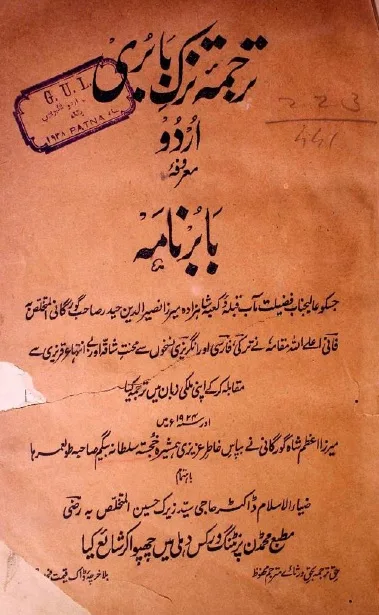 ترجمۂ تزک بابری
G. U. L.
1938 PATNA
223
441
اُردُو
معروفہ
بابُر نامہ
جسکو عالیجناب فضیلت مآب قبلہ و کعبہ شاہزادہ میرزا نصیرالدین حیدر صاحب گورگانی المتخلص بہ
فانی اعلے اللہ مقامہ نے ترکی فارسی اور انگریزی نسخوں سے محنتِ شاقہ اور بے انتہا عرقریزی سے
مقابلہ کر کے اپنی ملکی زبان میں ترجمہ کیا
اور ۱۹۲۴ء میں
میرزا اعظم شاہ گورگانی نے بپاس خاطر عزیزی ہمشیرہ خجستہ سلطانہ بیگم صاحبہ طولعمرہا
باہتمام
ضیاءالاسلام ڈاکٹر حاجی سید زیرک حسین المتخلص بہ رضی
مطبع محمڈن پرنٹنگ ورکس دہلی میں چھپوا کر شائع کیا
حق ترجمہ بحق ورثائے مترجم محفوظ
بلا خرچہ ڈاک قیمت